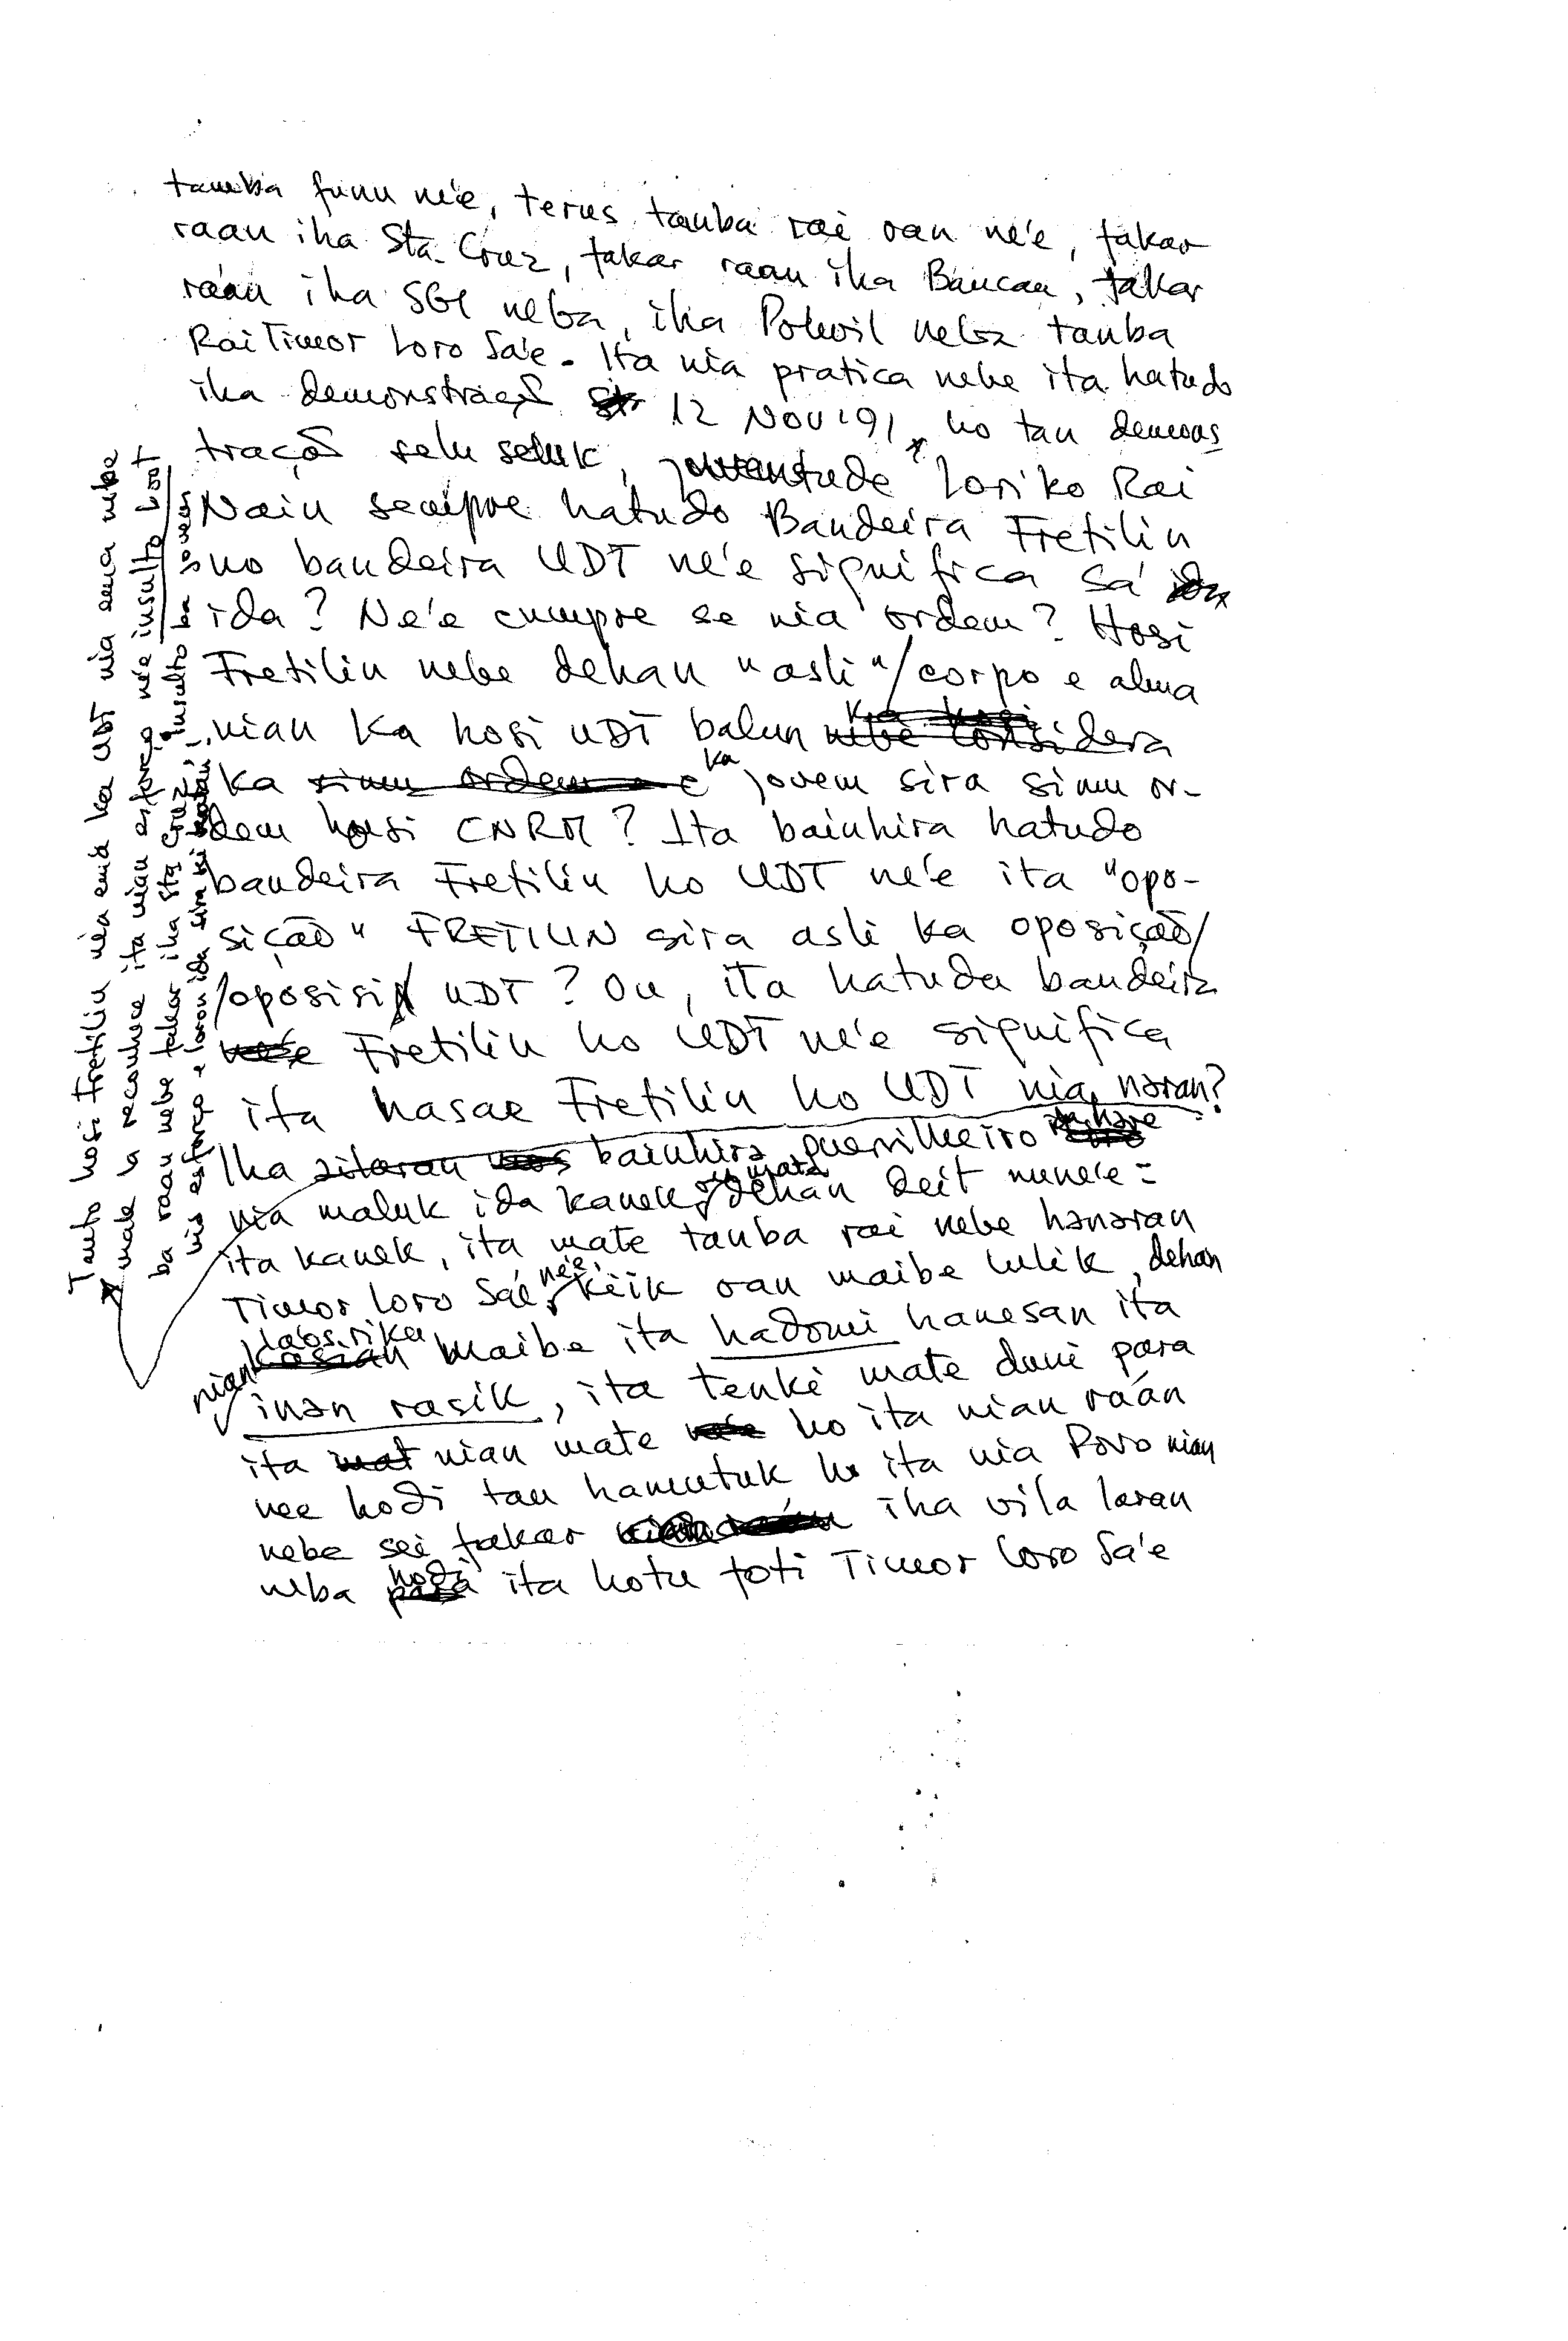 tamba funu ne'e, terus tamba rai oan ne'e, fakar
raan iha Sta. Cruz, fakar raan iha Baucau, fakar
ráan iha SGI neba, iha Polwil neba tamba
Rai Timor Loro Sa'e. Ita nia pratica nebe ita hatudo
iha demonstração 12 Nov '91, ho tan demons
tração selu seluk, juventude Loriko Rai
Nain sempre hatudo Bandeira Fretilin
no bandeira UDT ne'e significa sá
ida? Ne'e cumpre se nia ordem? Hosi
Fretilin nebe dehan "asli"/corpo e alma
nian ka hosi UDT balun
ka ka jovem sira simu or-
dem hosi CNRM? Ita bainhira hatudo
bandeira Fretilin ho UDT ne'e ita "opo-
sição" FRETILIN sira asli ka oposição/
/oposisi UDT? Ou, ita hatuda bandeira
Fretilin ho UDT ne'e significa
ita hasae Fretilin ho UDT nia naran?
Iha bainhira guerrilheiro hare
nia maluk ida kanek mate dehan deit nune'e:
ita kanek, ita mate tamba rai nebe hanaran
Timor Loro Sáe, ne'e, kiik oan maibe lulik, dehan
la'os riku maibe ita hadomi hanesan ita
nian inan rasik, ita tenki mate duni para
ita nian mate ho ita nian ráan
nee hodi tau hamutuk ho ita nia Povo nian
nebe sei fakar iha vila laran
neba hodi ita hotu foti Timor Loro Sa'e
Tanto hosi Fretilin nia ema ka UDT nia ema nebe
mate la reconhece ita nian esforço ne'e insulto boot
ba raan nebe fakar iha Sta Cruz, insulto ba jovens
nia esforço e loron ida sira sei